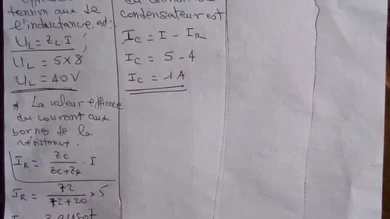 tension aux de
l'inductance, est:
UL = ZL I
UL = 5 x 8
UL = 40V
* La valeur efficace
du courant aux
bornes de la
résistance.
IR = Zc / Zc+ZR . I
IR = 72 / 72+20 x 5
du courant
condensateur est
Ic = I - IR
Ic = 5 - 4
Ic = 1A